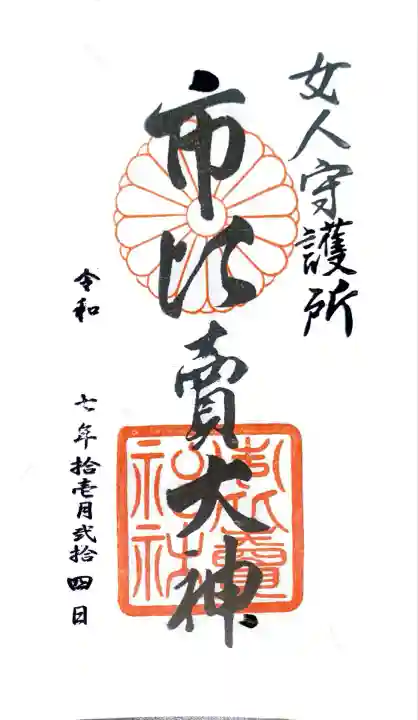 女人守護所
市比賣大神
令和 七年拾壱月弐拾四日